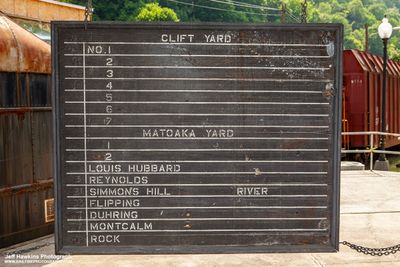 CLIFT YARD
NO. 1
2
3
4
5
6
7
MATOAKA YARD
1
2
LOUIS HUBBARD
REYNOLDS
SIMMON'S HILL RIVER
FLIPPING
DUHRING
MONTCALM
ROCK
Jeff Hawkins Photography